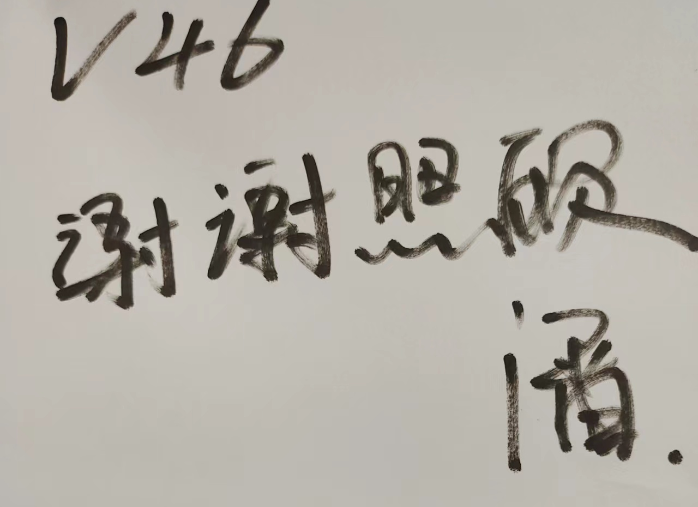 V46
谢谢照顾